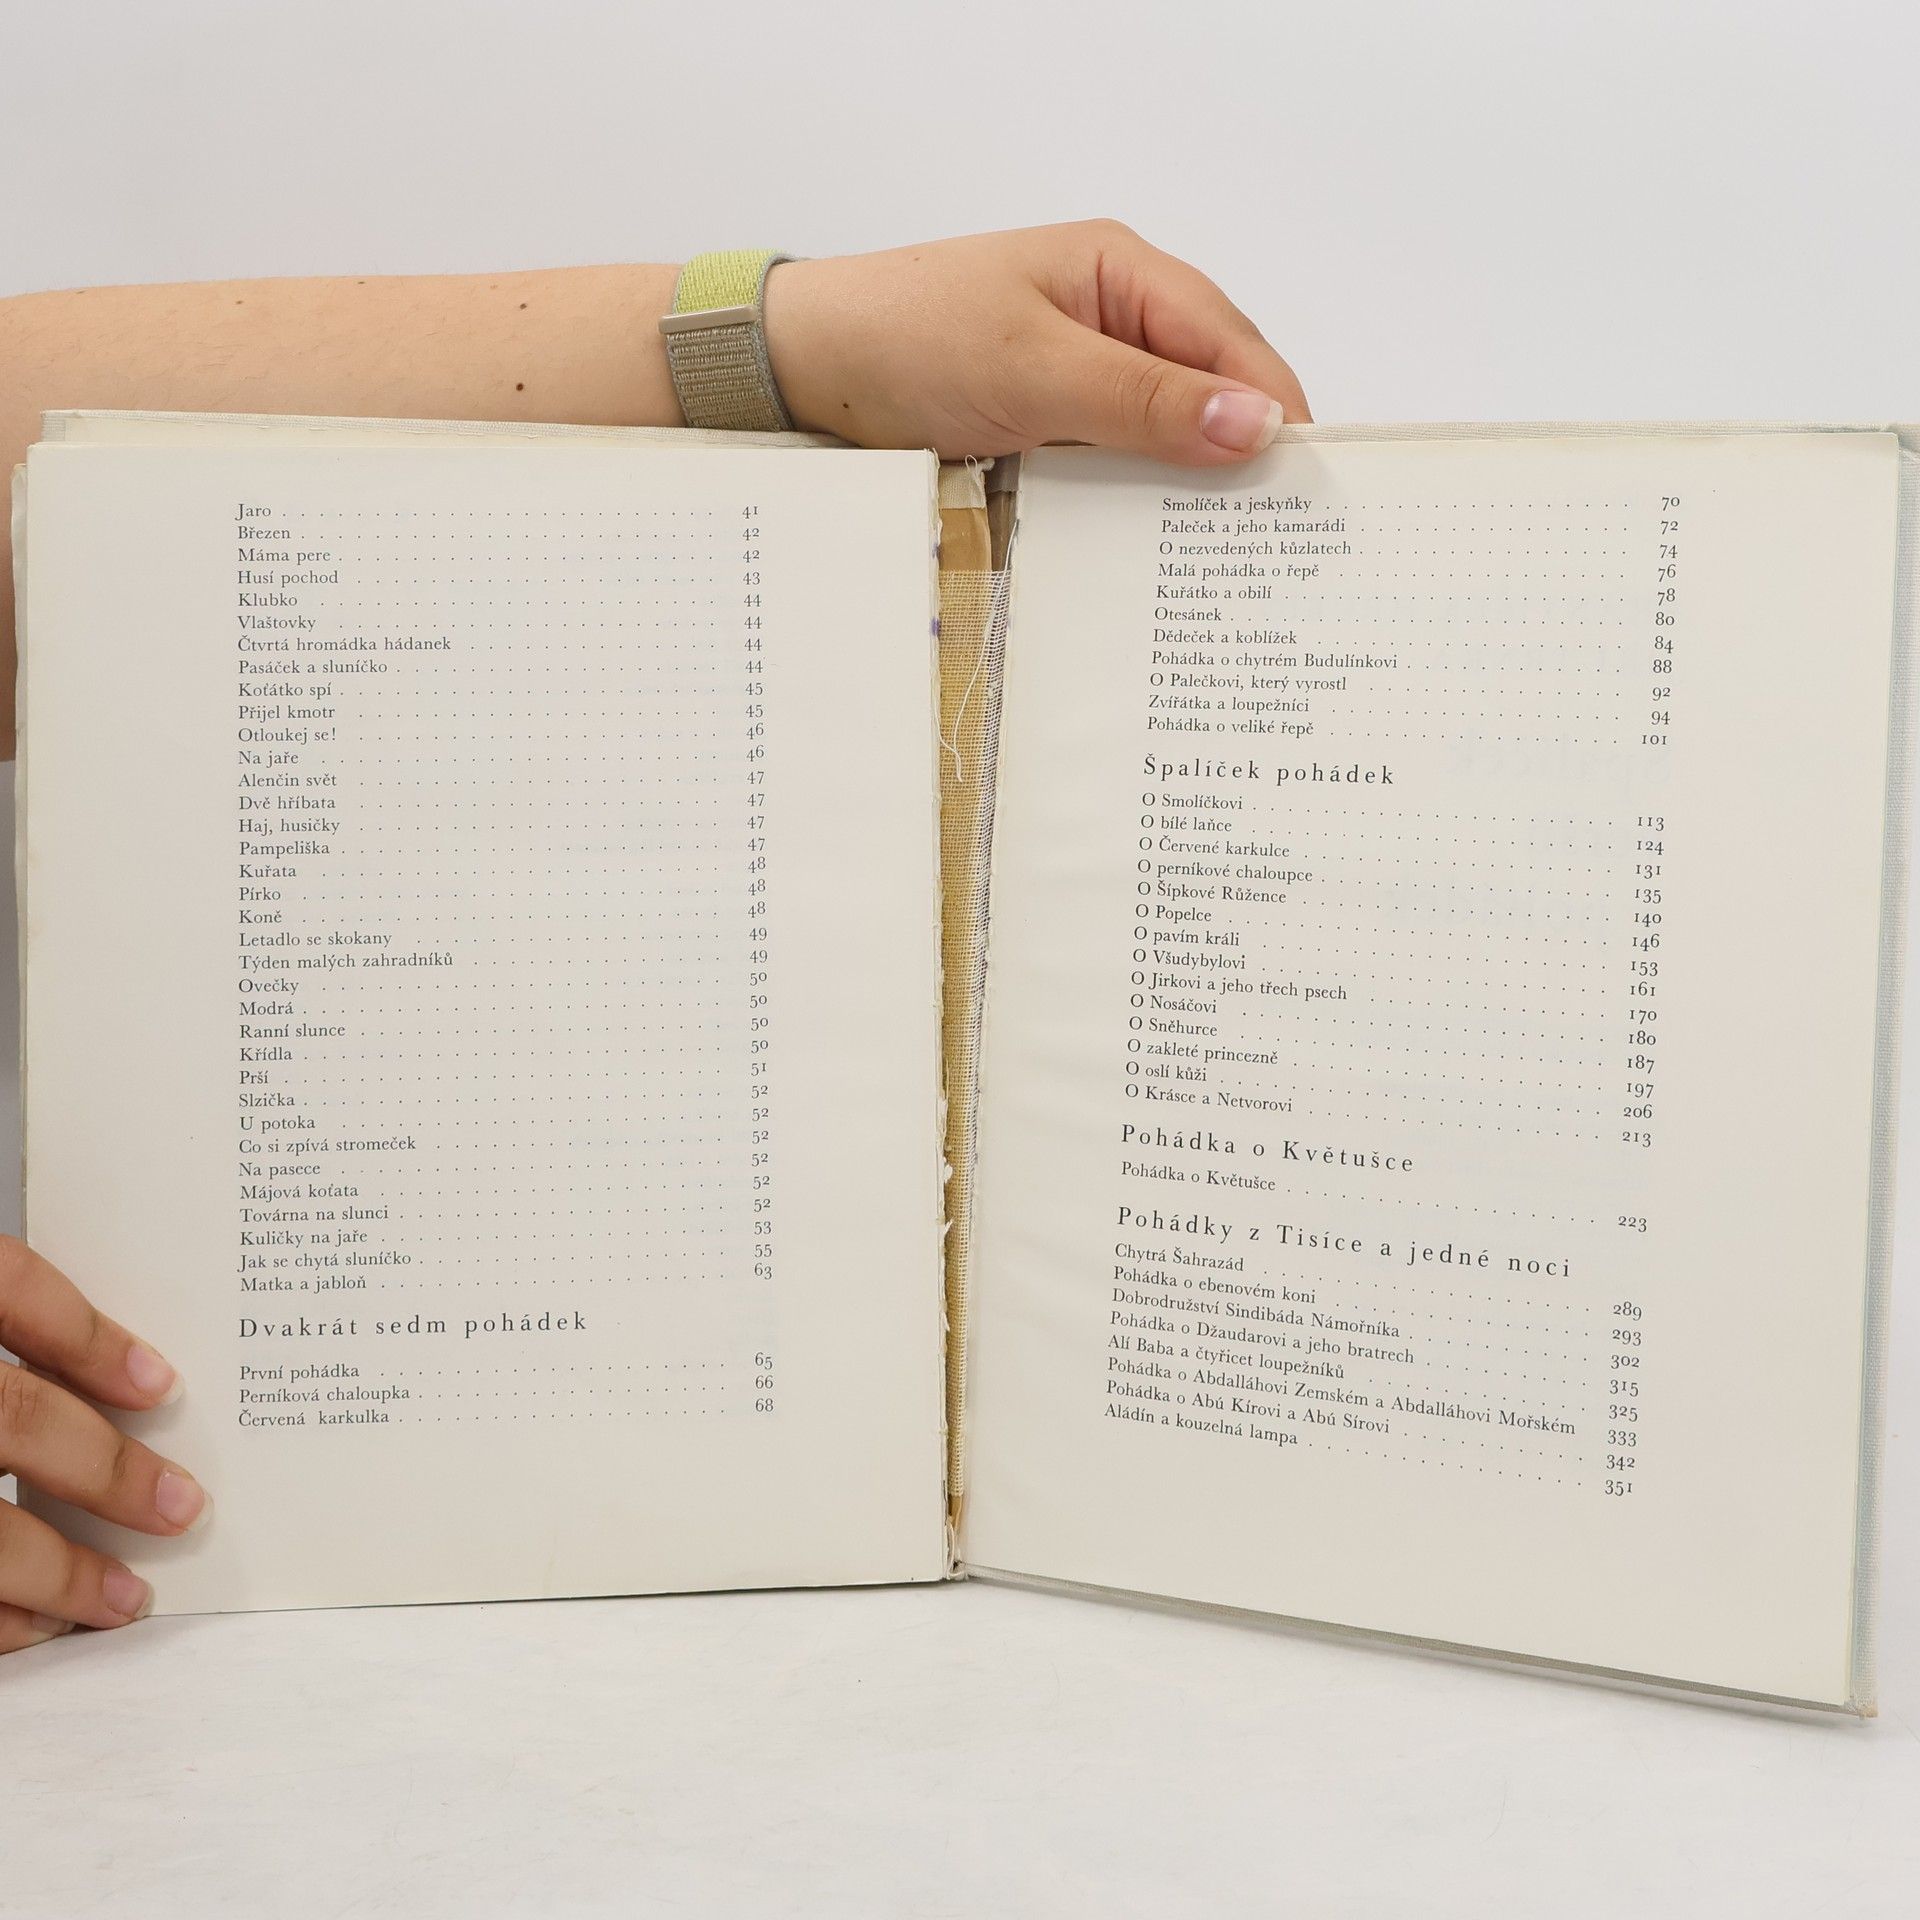 Jaro . . . . . . . . . . . . . . . . . . . . 41
Březen . . . . . . . . . . . . . . . . . . . 42
Máma pere . . . . . . . . . . . . . . . . . 42
Husí pochod . . . . . . . . . . . . . . . . 43
Klubko . . . . . . . . . . . . . . . . . . 44
Vlaštovky . . . . . . . . . . . . . . . . . 44
Čtvrtá hromádka hádanek . . . . . . . . . . . 44
Pasáček a sluníčko . . . . . . . . . . . . . . 44
Koťátko spí . . . . . . . . . . . . . . . . . 45
Přijel kmotr . . . . . . . . . . . . . . . . 45
Otloukej se! . . . . . . . . . . . . . . . . 46
Na jaře . . . . . . . . . . . . . . . . . . 46
Alenčin svět . . . . . . . . . . . . . . . . 47
Dvě hříbata . . . . . . . . . . . . . . . . 47
Haj, husičky . . . . . . . . . . . . . . . . 47
Pampeliška . . . . . . . . . . . . . . . . . 47
Kuřata . . . . . . . . . . . . . . . . . . 48
Pírko . . . . . . . . . . . . . . . . . . . 48
Koně . . . . . . . . . . . . . . . . . . . 48
Letadlo se skokany . . . . . . . . . . . . . 49
Týden malých zahradníků . . . . . . . . . . 49
Ovečky . . . . . . . . . . . . . . . . . . 50
Modrá . . . . . . . . . . . . . . . . . . . 50
Ranní slunce . . . . . . . . . . . . . . . . 50
Křídla . . . . . . . . . . . . . . . . . . . 50
Prší . . . . . . . . . . . . . . . . . . . . 51
Slzička . . . . . . . . . . . . . . . . . . . 52
U potoka . . . . . . . . . . . . . . . . . 52
Co si zpívá stromeček . . . . . . . . . . . . 52
Na pasece . . . . . . . . . . . . . . . . . 52
Májová koťata . . . . . . . . . . . . . . . 52
Továrna na slunci . . . . . . . . . . . . . . 52
Kuličky na jaře . . . . . . . . . . . . . . . 53
Jak se chytá sluníčko . . . . . . . . . . . . . 55
Matka a jabloň . . . . . . . . . . . . . . . 63
Dvakrát sedm pohádek
První pohádka . . . . . . . . . . . . . . . 65
Perníková chaloupka . . . . . . . . . . . . . 66
Červená karkulka . . . . . . . . . . . . . . 68
Smolíček a jeskyňky . . . . . . . . . . . . . . 70
Paleček a jeho kamarádi . . . . . . . . . . . . 72
O nezvedených kůzlatech . . . . . . . . . . . . 74
Malá pohádka o řepě . . . . . . . . . . . . . 76
Kuřátko a obilí . . . . . . . . . . . . . . . . 78
Otesánek . . . . . . . . . . . . . . . . . . 80
Dědeček a koblížek . . . . . . . . . . . . . . 84
Pohádka o chytrém Budulínkovi . . . . . . . . . 88
O Palečkovi, který vyrostl . . . . . . . . . . . 92
Zvířátka a loupežníci . . . . . . . . . . . . . 94
Pohádka o veliké řepě . . . . . . . . . . . . . 101
Špalíček pohádek
O Smolíčkovi . . . . . . . . . . . . . . . . . 113
O bílé laňce . . . . . . . . . . . . . . . . . 124
O Červené karkulce . . . . . . . . . . . . . . 131
O perníkové chaloupce . . . . . . . . . . . . . 135
O Šípkové Růžence . . . . . . . . . . . . . . 140
O Popelce . . . . . . . . . . . . . . . . . . 146
O pavím králi . . . . . . . . . . . . . . . . 153
O Všudybylovi . . . . . . . . . . . . . . . . 161
O Jirkovi a jeho třech psech . . . . . . . . . . . 170
O Nosáčovi . . . . . . . . . . . . . . . . . 180
O Sněhurce . . . . . . . . . . . . . . . . . 187
O zakleté princezně . . . . . . . . . . . . . . 197
O oslí kůži . . . . . . . . . . . . . . . . . . 206
O Krásce a Netvorovi . . . . . . . . . . . . . 213
Pohádka o Květušce
Pohádka o Květušce . . . . . . . . . . . . . . 223
Pohádky z Tisíce a jedné noci
Chytrá Šahrazád . . . . . . . . . . . . . . . 289
Pohádka o ebenovém koni . . . . . . . . . . . 293
Dobrodružství Sindibáda Námořníka . . . . . . . . 302
Pohádka o Džaudarovi a jeho bratrech . . . . . . . 315
Alí Baba a čtyřicet loupežníků . . . . . . . . . . 325
Pohádka o Abdalláhovi Zemském a Abdalláhovi Mořském 333
Pohádka o Abú Kírovi a Abú Sírovi . . . . . . . . 342
Aládín a kouzelná lampa . . . . . . . . . . . . 351